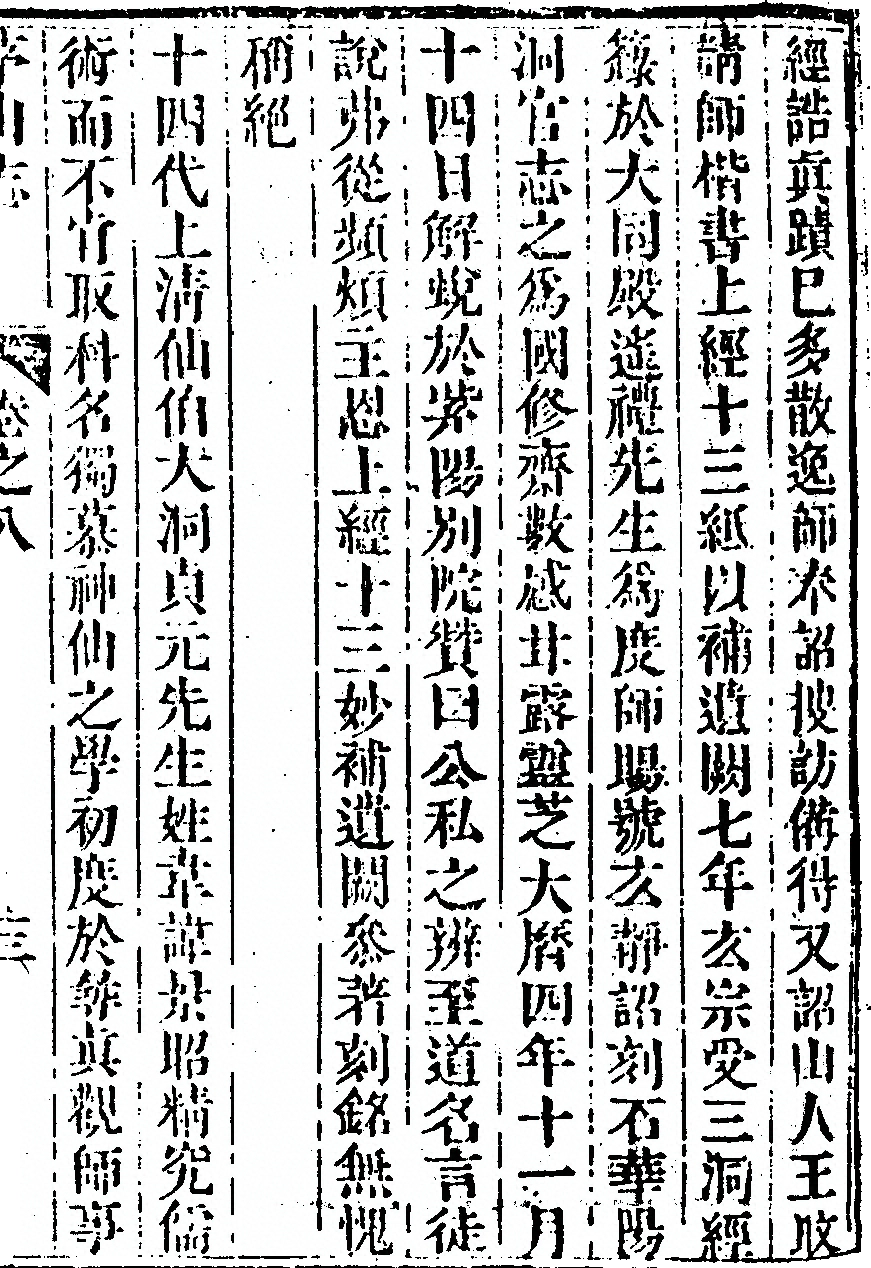 經誥眞蹟巳多散逸師奉詔搜訪備得又詔山人王旼
請師楷書上經十三紙以補遺闕七年玄宗受三洞經
籙於大同殿遙禮先生爲度師賜號玄靜詔刻石華陽
洞宮志之爲國修齋數感甘露靈芝大曆四年十一月
十四日解蛻於紫陽別院贊曰公私之辨至道名言徒
說弗從頻煩主恩上經十三妙補遺闕叅著刻銘無愧
稱絕
十四代上清仙伯大洞貞元先生姓韋諱景昭精究儒
術而不肯取科名獨慕神仙之學初度於尋真觀師事
茅山志 卷之八 三